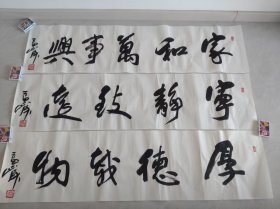 家和萬事興
寧靜致遠
厚德載物